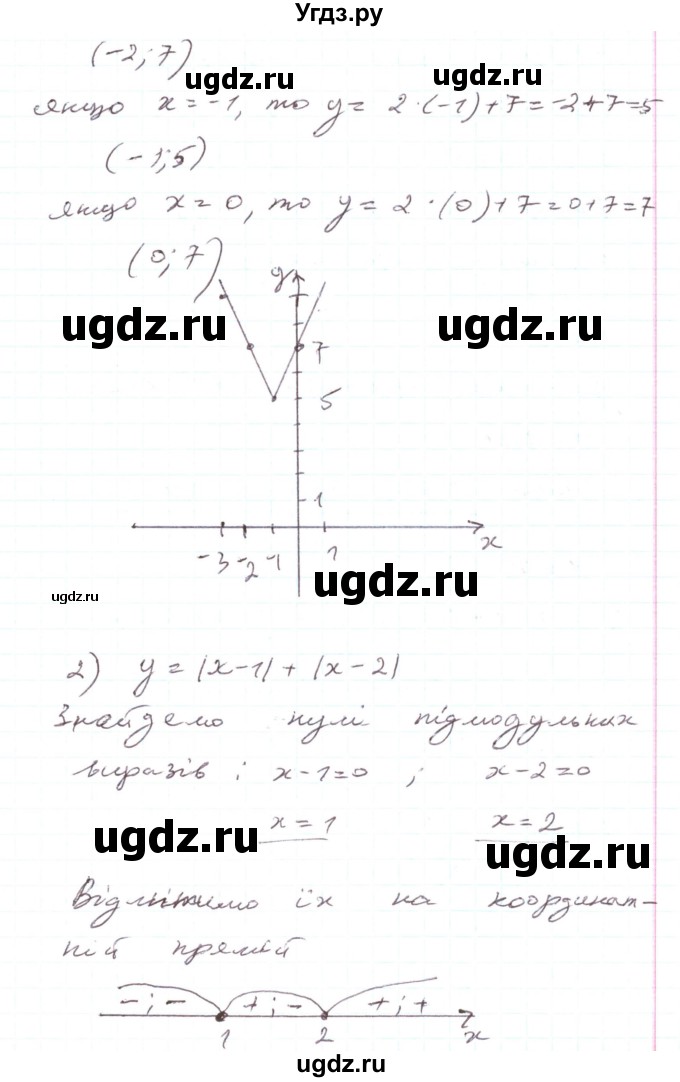 Угдз.ру
(-2; 7)
ugdz.ru ugdz.ru
якщо x = -1, то y = 2 · (-1) + 7 = -2 + 7 = 5
(-1; 5)
якщо x = 0, то y = 2 · (0) + 7 = 0 + 7 = 7
(0; 7)
y
ugdz.ru ugdz.ru
7
5
1
-3 -2 -1 1 x
ugdz.ru
ugdz.ru
2) y = |x-1| + |x-2|
Знайдемо нулі підмодульних
виразів: x-1=0 ; x-2=0
x = 1 x = 2
ugdz.ru ugdz.ru
Відмітимо їх на координат-
ній прямій
- ; - + ; - + ; +
1 2 x
ugdz.ru